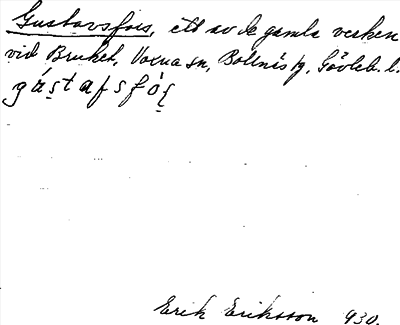 Gustavsfors, ett av de gamla verken
vid Bruket, Voxna sn, Bollnäs tg, Gävleb. l.
Erik Eriksson 930.